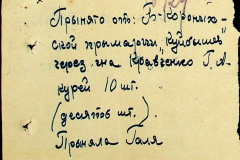 Прынято от: Б-Короных-
ской прымарии "Куйбышев"
через гна Кравченко Г. А.
курей 10 шт.
(десять шт.)
Прыняла Галя